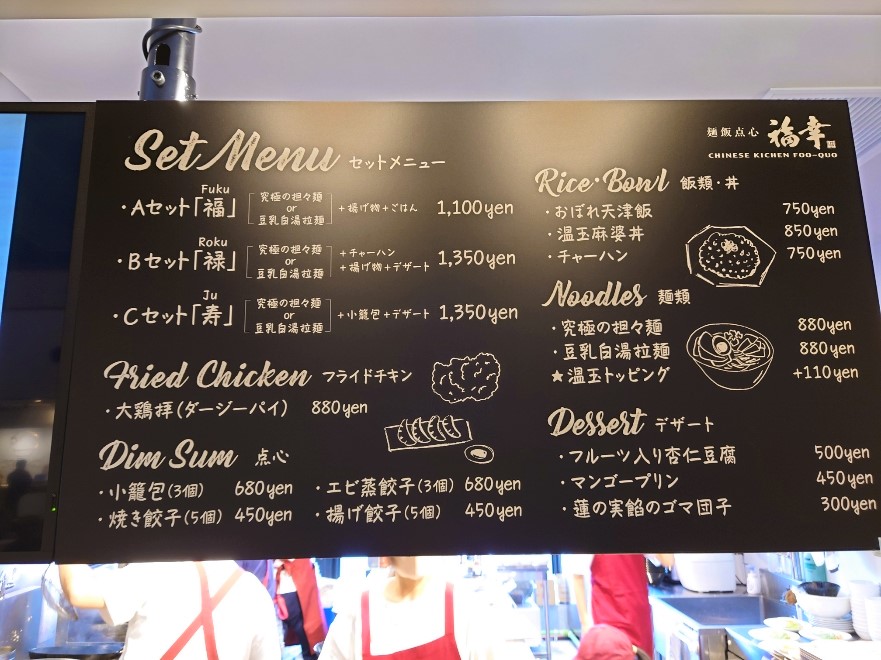 Set Menu セットメニュー
Fuku
・Aセット「福」 究極の担々麺 or 豆乳白湯拉麺 +揚げ物+ごはん 1,100yen
Roku
・Bセット「禄」 究極の担々麺 or 豆乳白湯拉麺 +チャーハン +揚げ物+デザート 1,350yen
Ju
・Cセット「寿」 究極の担々麺 or 豆乳白湯拉麺 +小籠包+デザート 1,350yen
Fried Chicken フライドチキン
・大鶏拝(ダージーパイ) 880yen
Dim Sum 点心
・小籠包(3個) 680yen ・エビ蒸餃子(3個) 680yen
・焼き餃子(5個) 450yen ・揚げ餃子(5個) 450yen
麺飯点心 福幸
CHINESE KICHEN FOO-QUO
Rice・Bowl 飯類・丼
・おぼれ天津飯 750yen
・温玉麻婆丼 850yen
・チャーハン 750yen
Noodles 麺類
・究極の担々麺 880yen
・豆乳白湯拉麺 880yen
★温玉トッピング +110yen
Dessert デザート
・フルーツ入り杏仁豆腐 500yen
・マンゴープリン 450yen
・蓮の実餡のゴマ団子 300yen